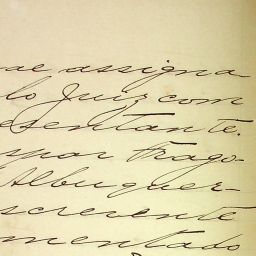 se assigna
lo Juiz com
esentante.
spar Frago-
Albuquer-
screvente
mentado